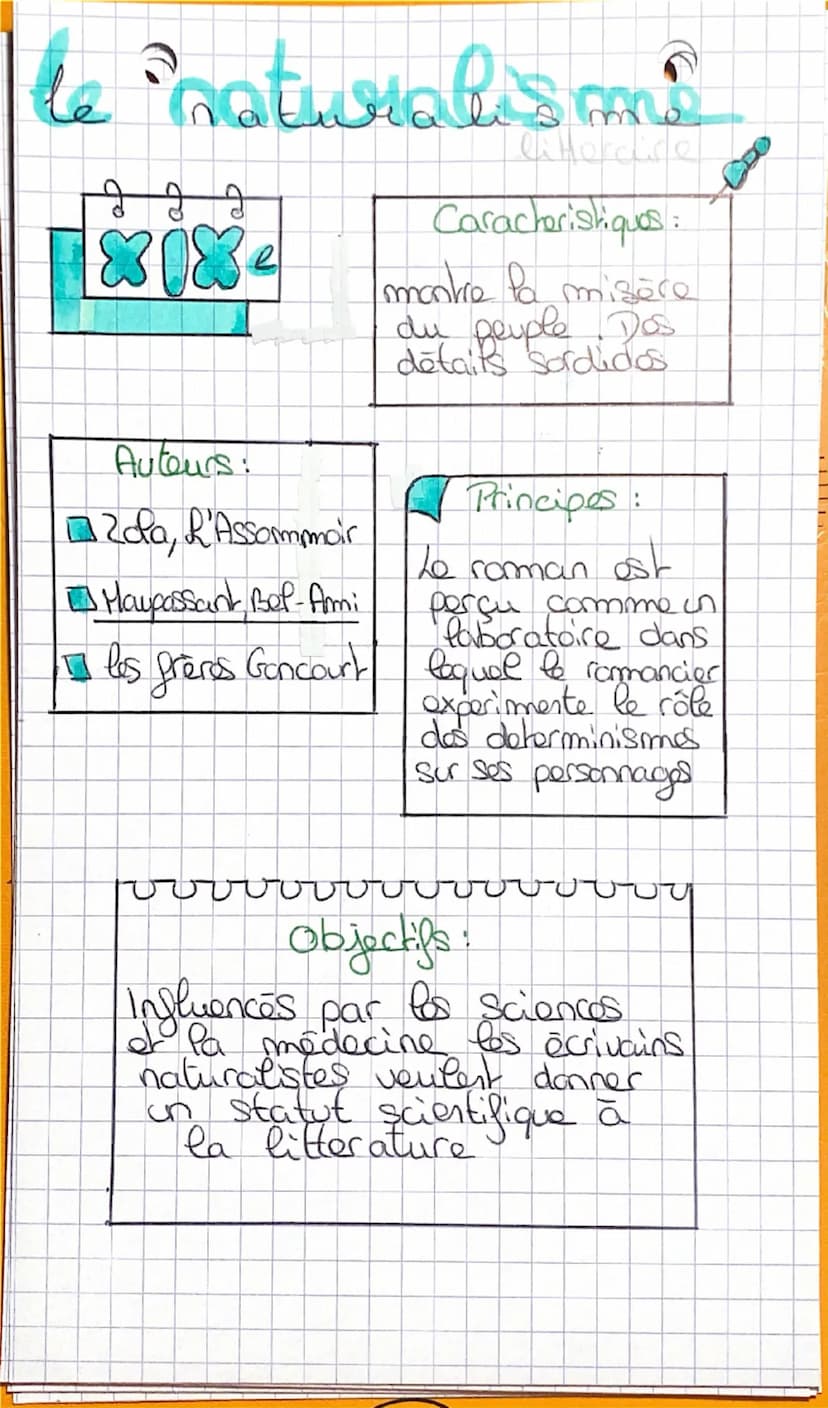 le naturalisme
littéraire
XIXe
Caractéristiques :
montre la misère
du peuple. Des
détails sordides
Auteurs :
Zola, L'Assommoir
Maupassant, Bel-Ami
les frères Goncourt
Principes :
Le roman est
perçu comme un
laboratoire dans
lequel le romancier
experimente le rôle
des determinismes
sur ses personnages
Objectifs :
Influencés par les sciences
et la médecine les écrivains
naturalistes veulent donner
un statut scientifique à
la litterature